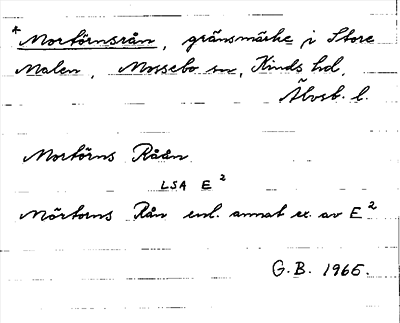 *Mortörnsrån, gränsmärke i Store
Malen, Mossebo sn, Kinds hd,
Älvsb. l.
Mortörns Råån
LSA E²
Mörtorns Rån enl. annat ex. av E²
G.B. 1965.